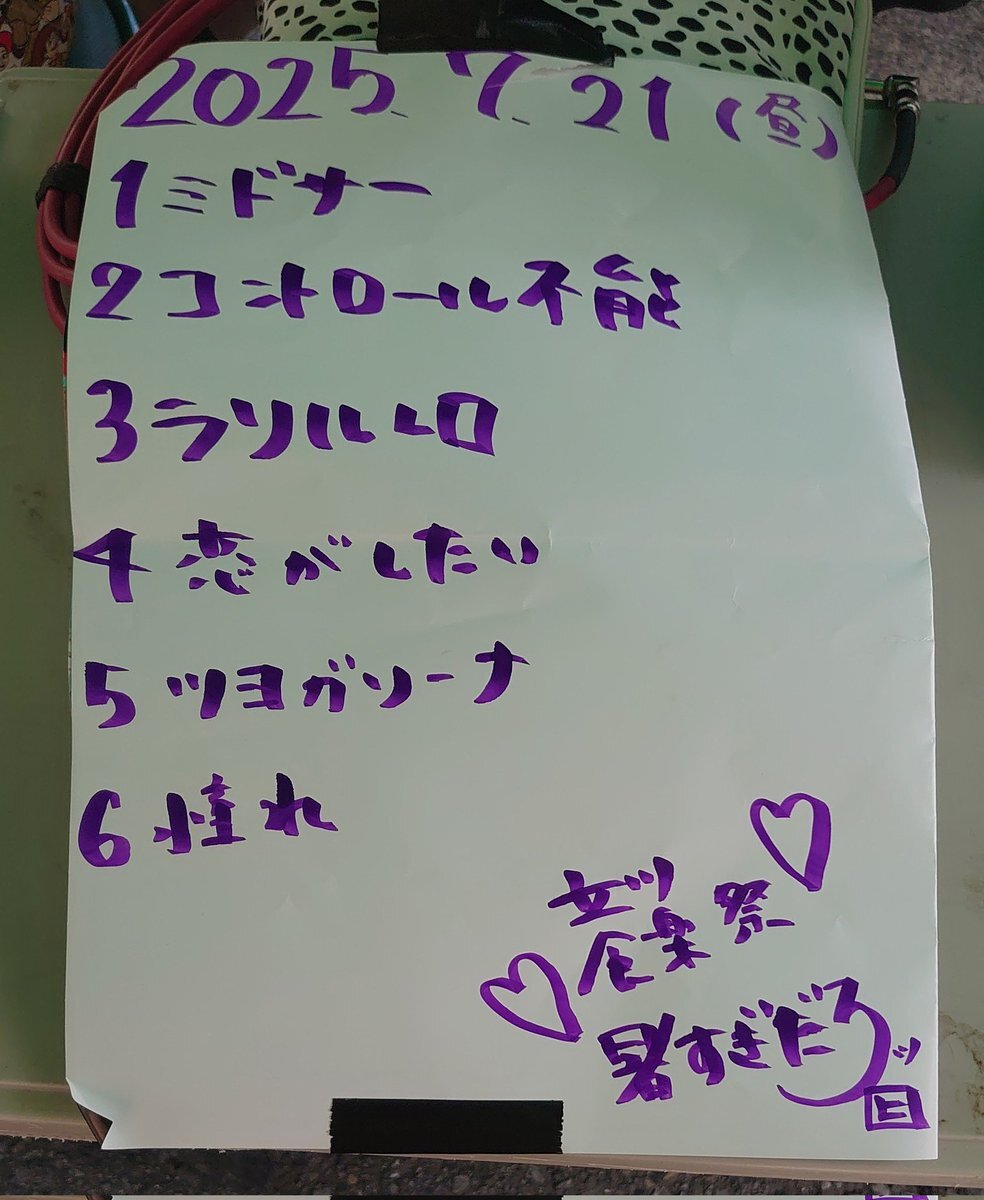 2025.7.21(昼)
1 ミドサー
2 コントロール不能
3 ラソルルロ
4 恋がしたい
5 ツヨガリーナ
6 憧れ
立川
産楽祭
暑すぎだろッ
日